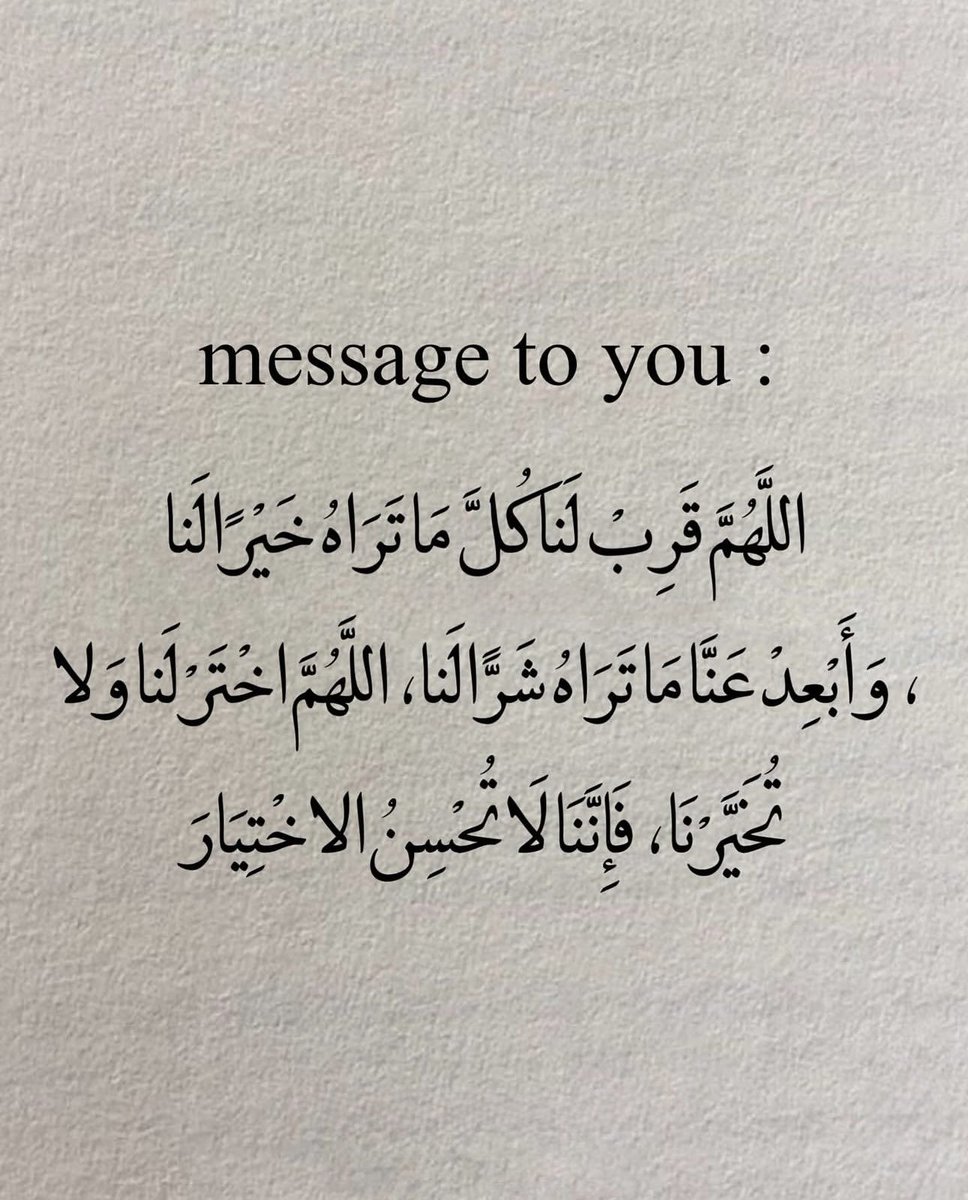 message to you :
اللَّهُمَّ قَرِبْ لَنَا كُلَّ مَا تَرَاهُ خَيْرًا لَنا
، وَأَبْعِدْ عَنَّا مَا تَرَاهُ شَرًّا لَنا، اللَّهُمَّ اخْتَرْ لَنا وَلا
تُخَيَّرْنَا، فَإِنَّنَا لَا تُحْسِنُ الاخْتِيَارَ